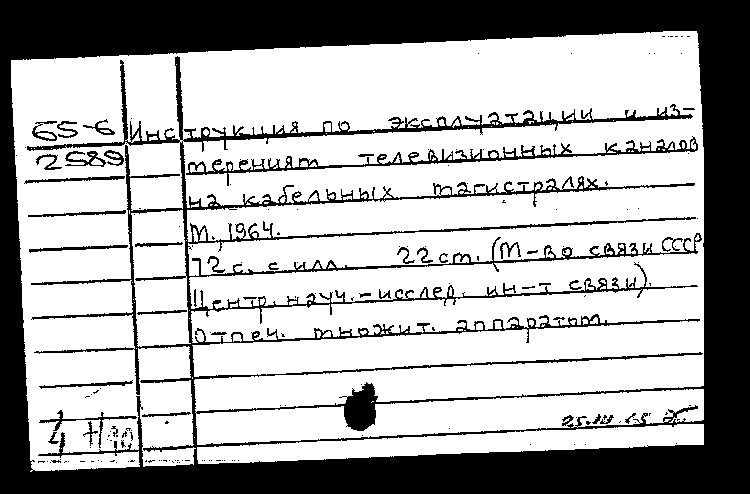 65-6 Инструкция по эксплуатации и из-
2589 мерениям телевизионных каналов
на кабельных магистралях.
М., 1964.
72 с. с илл. 22 см. (М-во связи СССР.
Центр. науч.-исслед. ин-т связи).
Отпеч. множит. аппаратом.
4